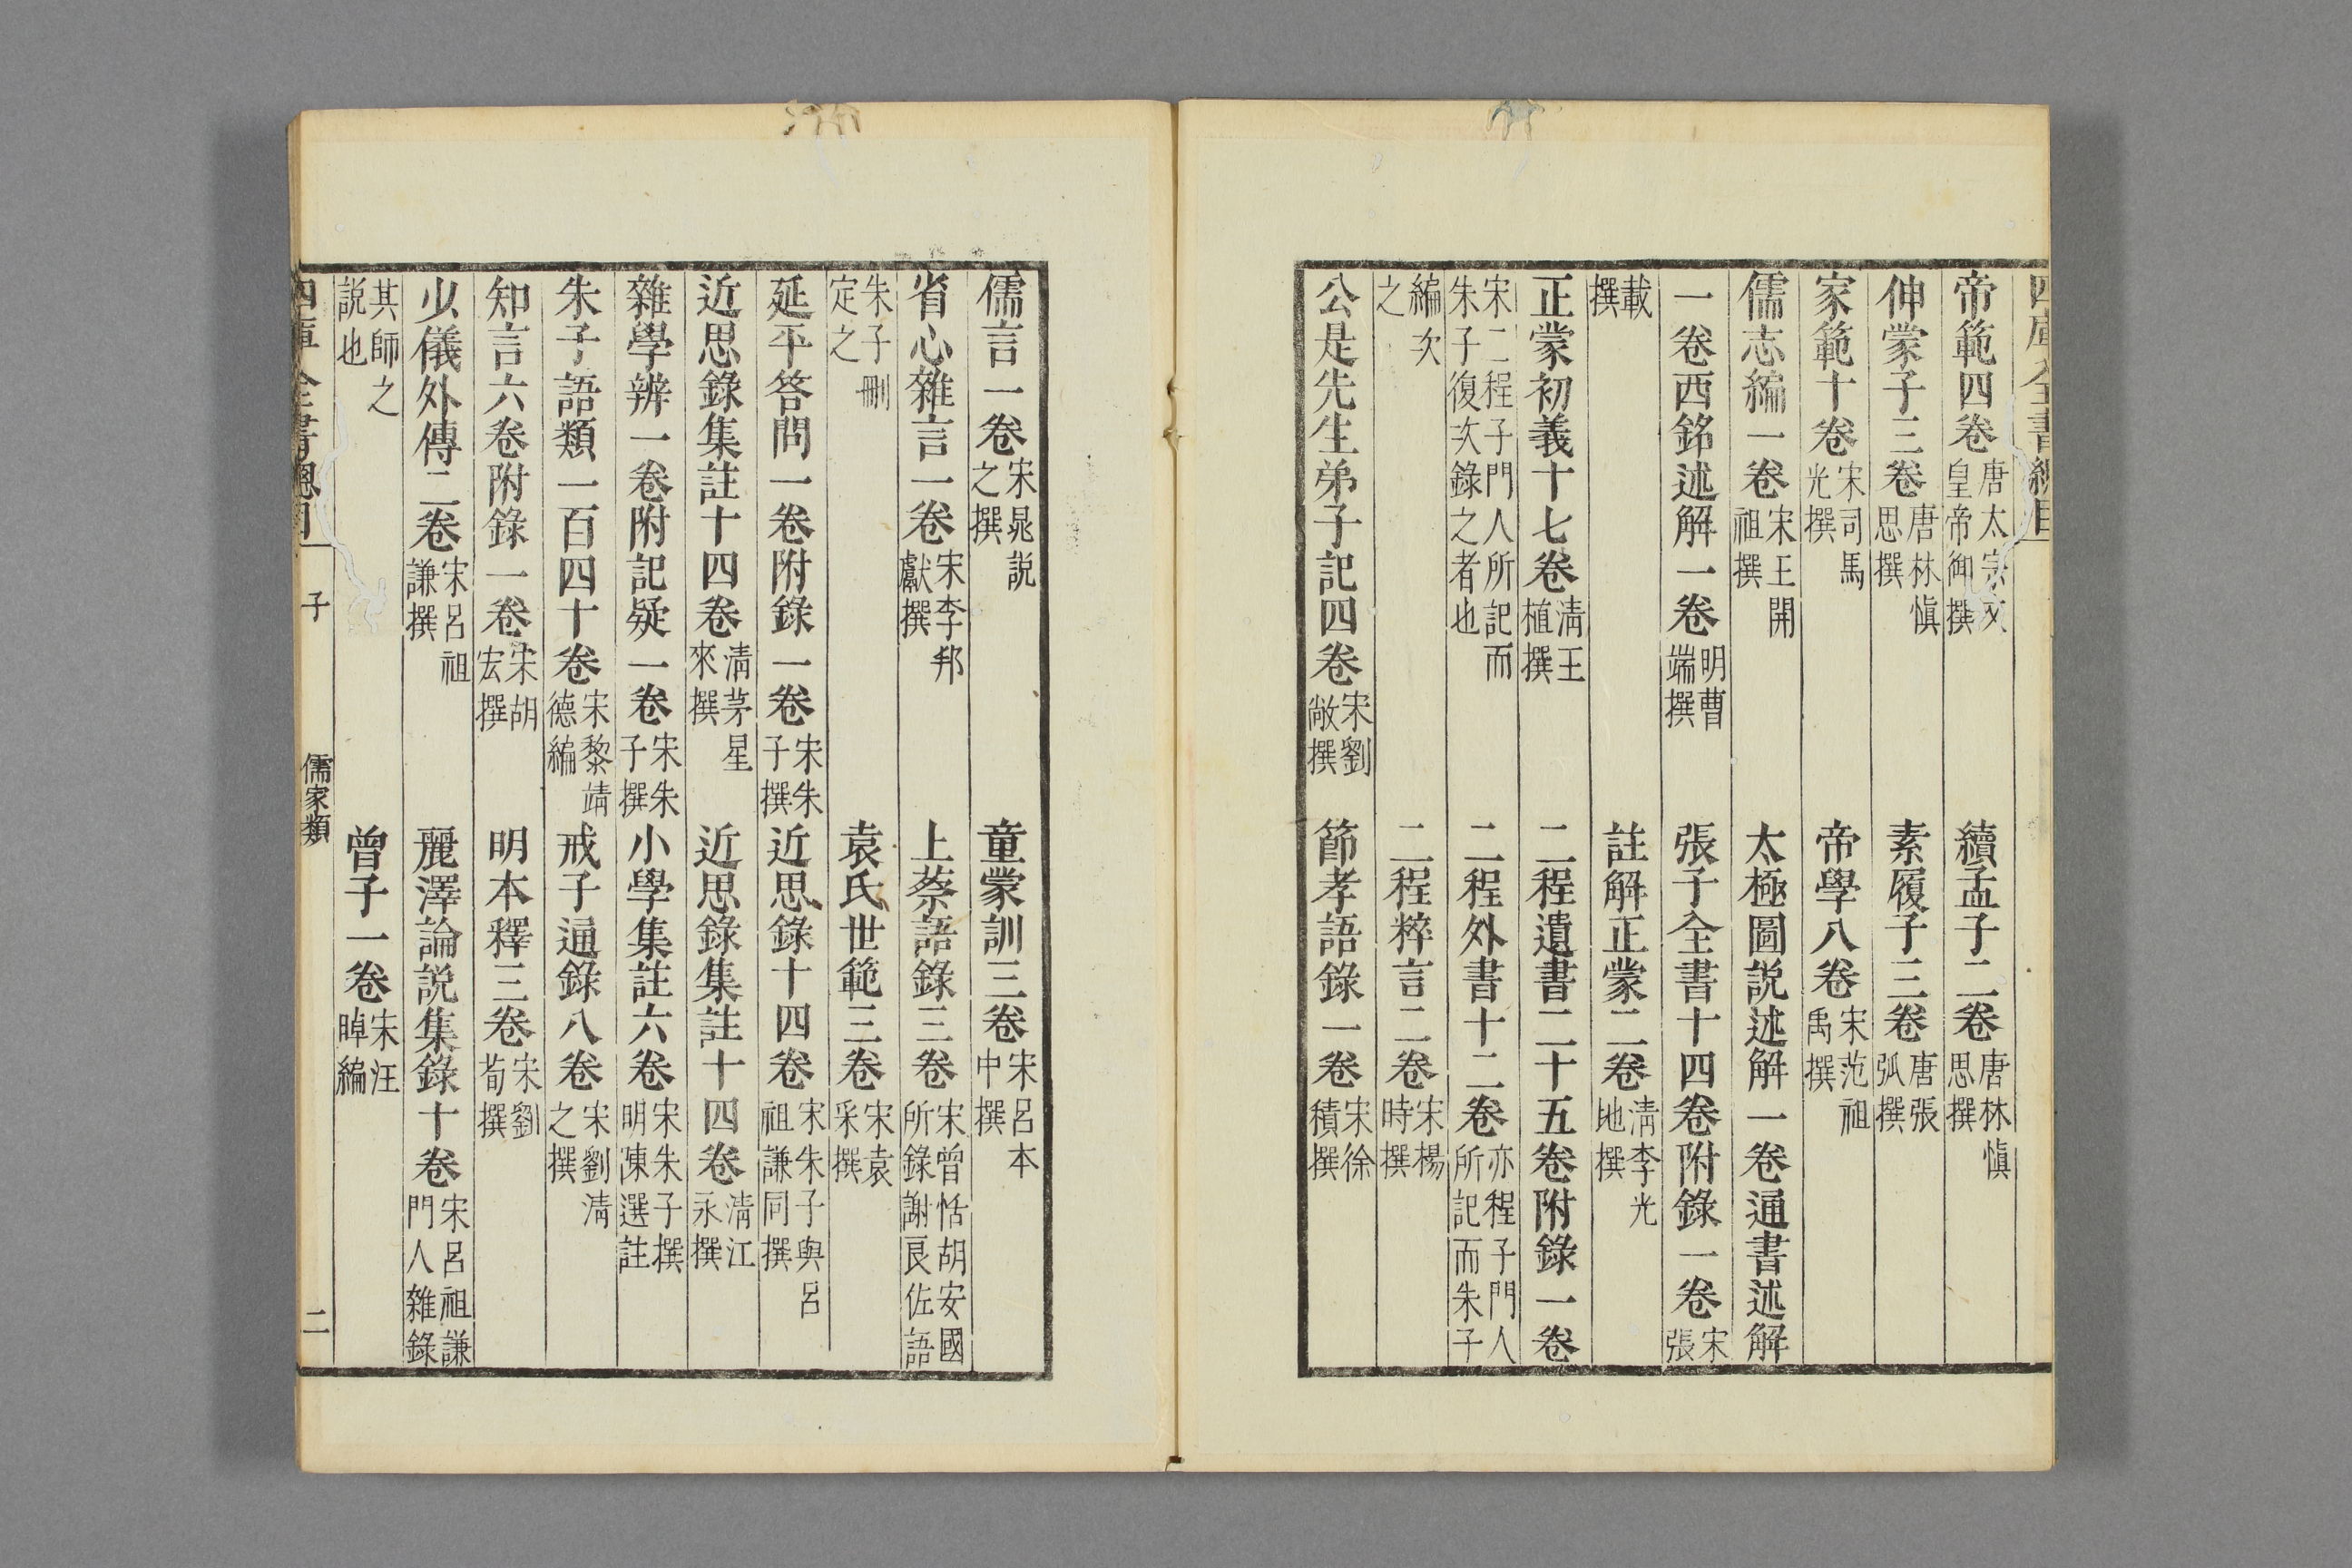 四庫全書總目
帝範四卷唐太宗文皇帝御撰　續孟子二卷唐林愼思撰
伸蒙子三卷唐林愼思撰　素履子三卷唐張弧撰
家範十卷宋司馬光撰　帝學八卷宋范祖禹撰
儒志編一卷宋王開祖撰　太極圖説述解一卷通書述解
一卷西銘述解一卷明曹端撰　張子全書十四卷附錄一卷宋張
載撰　註解正蒙二卷淸李光地撰
正蒙初義十七卷淸王植撰　二程遺書二十五卷附錄一卷
宋二程子門人所記而朱子復次錄之者也　二程外書十二卷亦程子門人所記而朱子
編次之　二程粹言二卷宋楊時撰
公是先生弟子記四卷宋劉敞撰　節孝語錄一卷宋徐積撰
儒言一卷宋晁説之撰　童蒙訓三卷宋呂本中撰
省心雜言一卷宋李邦獻撰　上蔡語錄三卷宋曾恬胡安國所錄謝良佐語
朱子刪定之　袁氏世範三卷宋袁采撰
延平答問一卷附錄一卷宋朱子撰　近思錄十四卷宋朱子與呂祖謙同撰
近思錄集註十四卷淸茅星來撰　近思錄集註十四卷淸江永撰
雜學辨一卷附記疑一卷宋朱子撰　小學集註六卷宋朱子撰明陳選註
朱子語類一百四十卷宋黎靖德編　戒子通錄八卷宋劉淸之撰
知言六卷附錄一卷宋胡宏撰　明本釋三卷宋劉荀撰
少儀外傳二卷宋呂祖謙撰　麗澤論説集錄十卷宋呂祖謙門人雜錄
其師之説也　曾子一卷宋汪晫編
四庫全書總目　子　儒家類　二